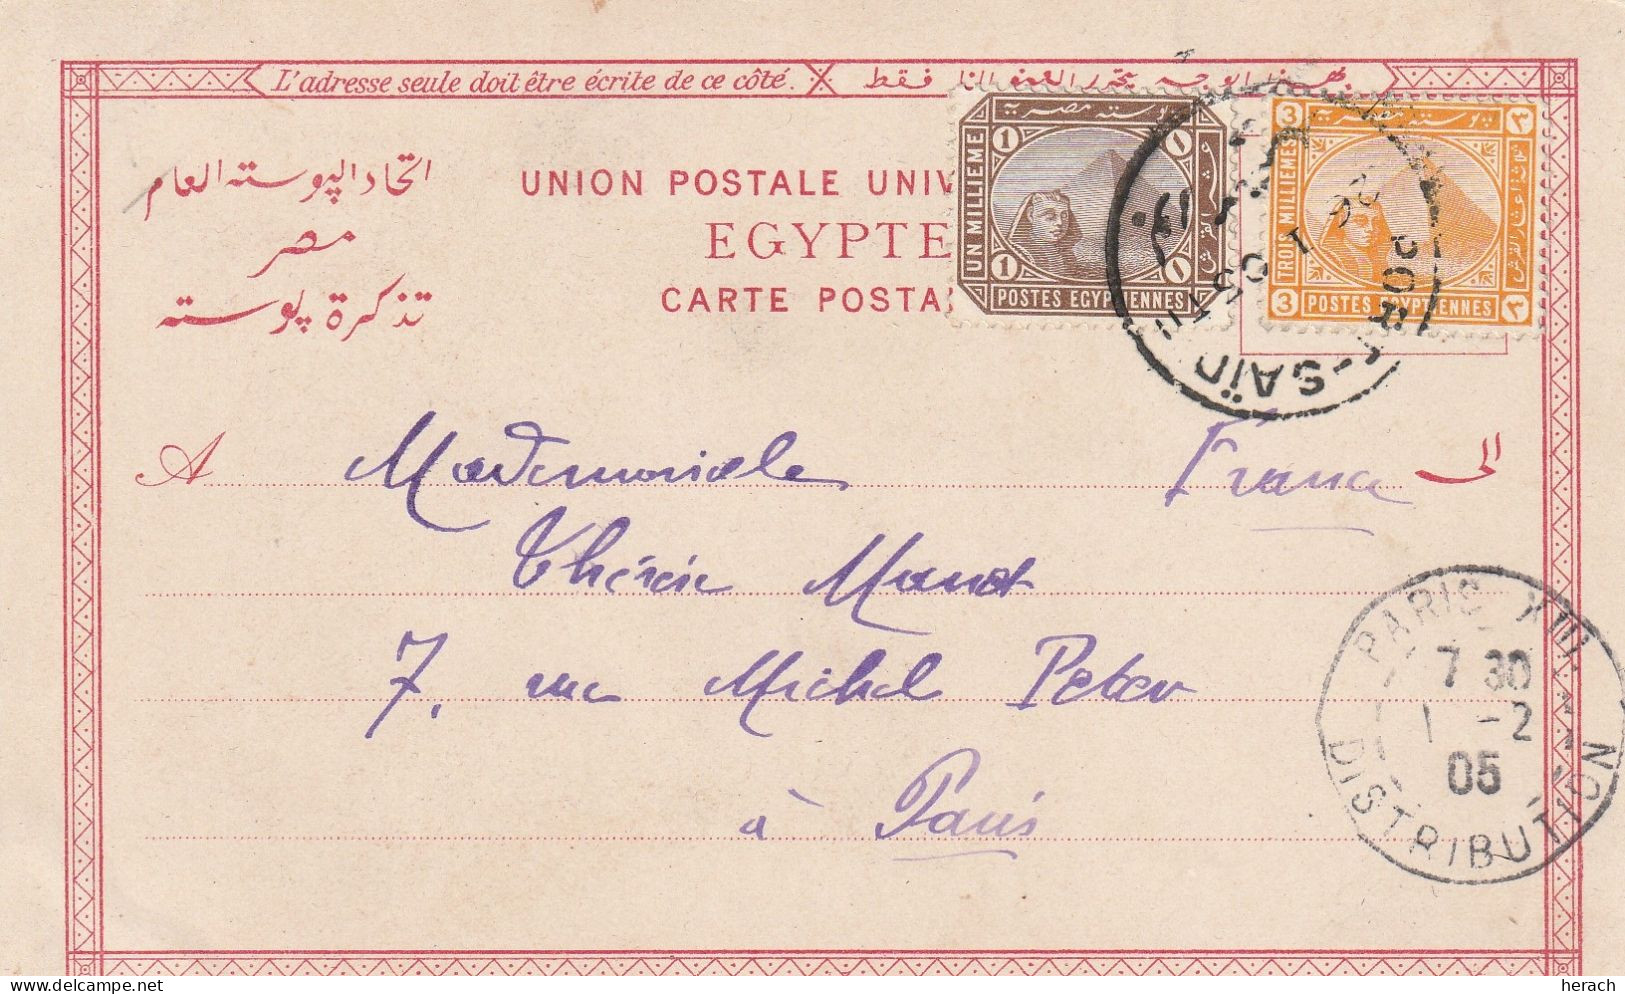 L'adresse seule doit être écrite de ce côté.
فقط
اتحاد البوسته العام
مصر
تذكرة بوسته
UNION POSTALE UNIV
EGYPTE
CARTE POSTA
بوسته مصرية
1
UN MILLIEME
1
POSTES EGYPTIENNES
3 بوسته مصرية ٣
TROIS MILLIEMES
3 POSTES EGYPTIENNES ٣
PORT-SAÏD
26 I 05
A Mademoiselle France الى
Thérèse
7, rue Michel Peter
à Paris
PARIS XIII
7 30
1 -2
05
DISTRIBUTION
delcampe.net
herach